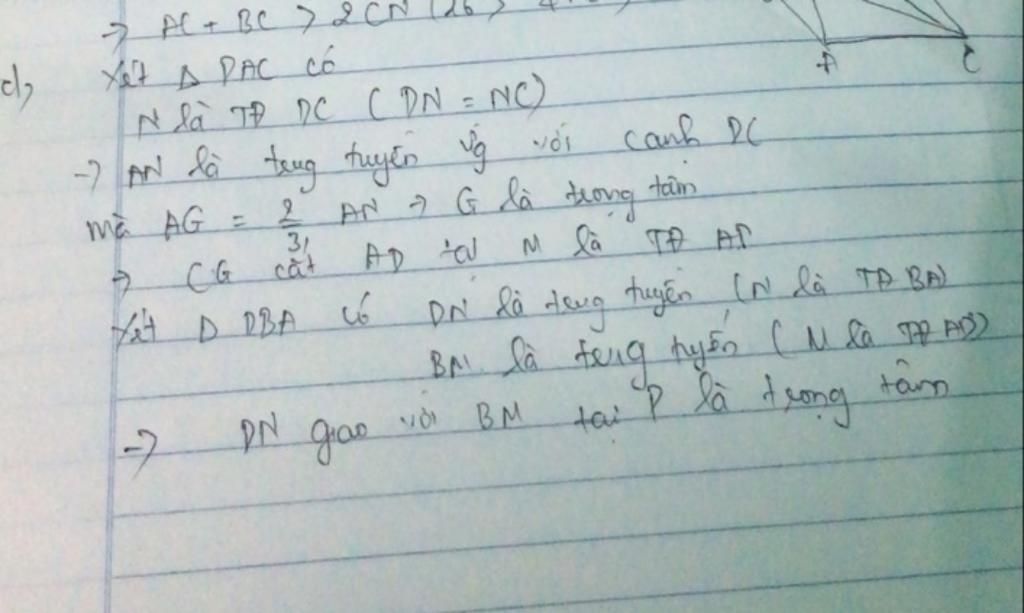 → AC + BC > 2CN (2b
A C
d, Xét Δ DAC có
N là TĐ DC (DN = NC)
→ AN là trung tuyến ứg với cạnh DC
mà AG = 2/3 AN → G là trọng tâm
→ CG cắt AD tại M là TĐ AD
Xét Δ DBA có DN là trung tuyến (N là TĐ BA)
BM là trung tuyến (M là TĐ AD)
→ DN giao với BM tại P là trọng tâm